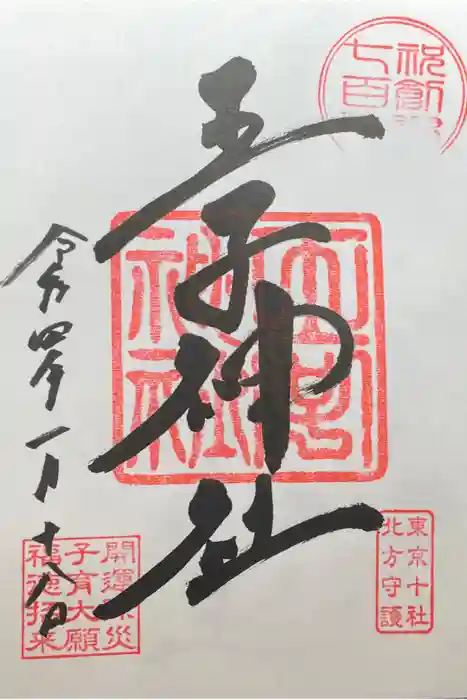 祝創
七百
王子神社
令和四年一月十八日
王子
神社
東京十社
北方守護
開運除災
子育大願
福徳招来